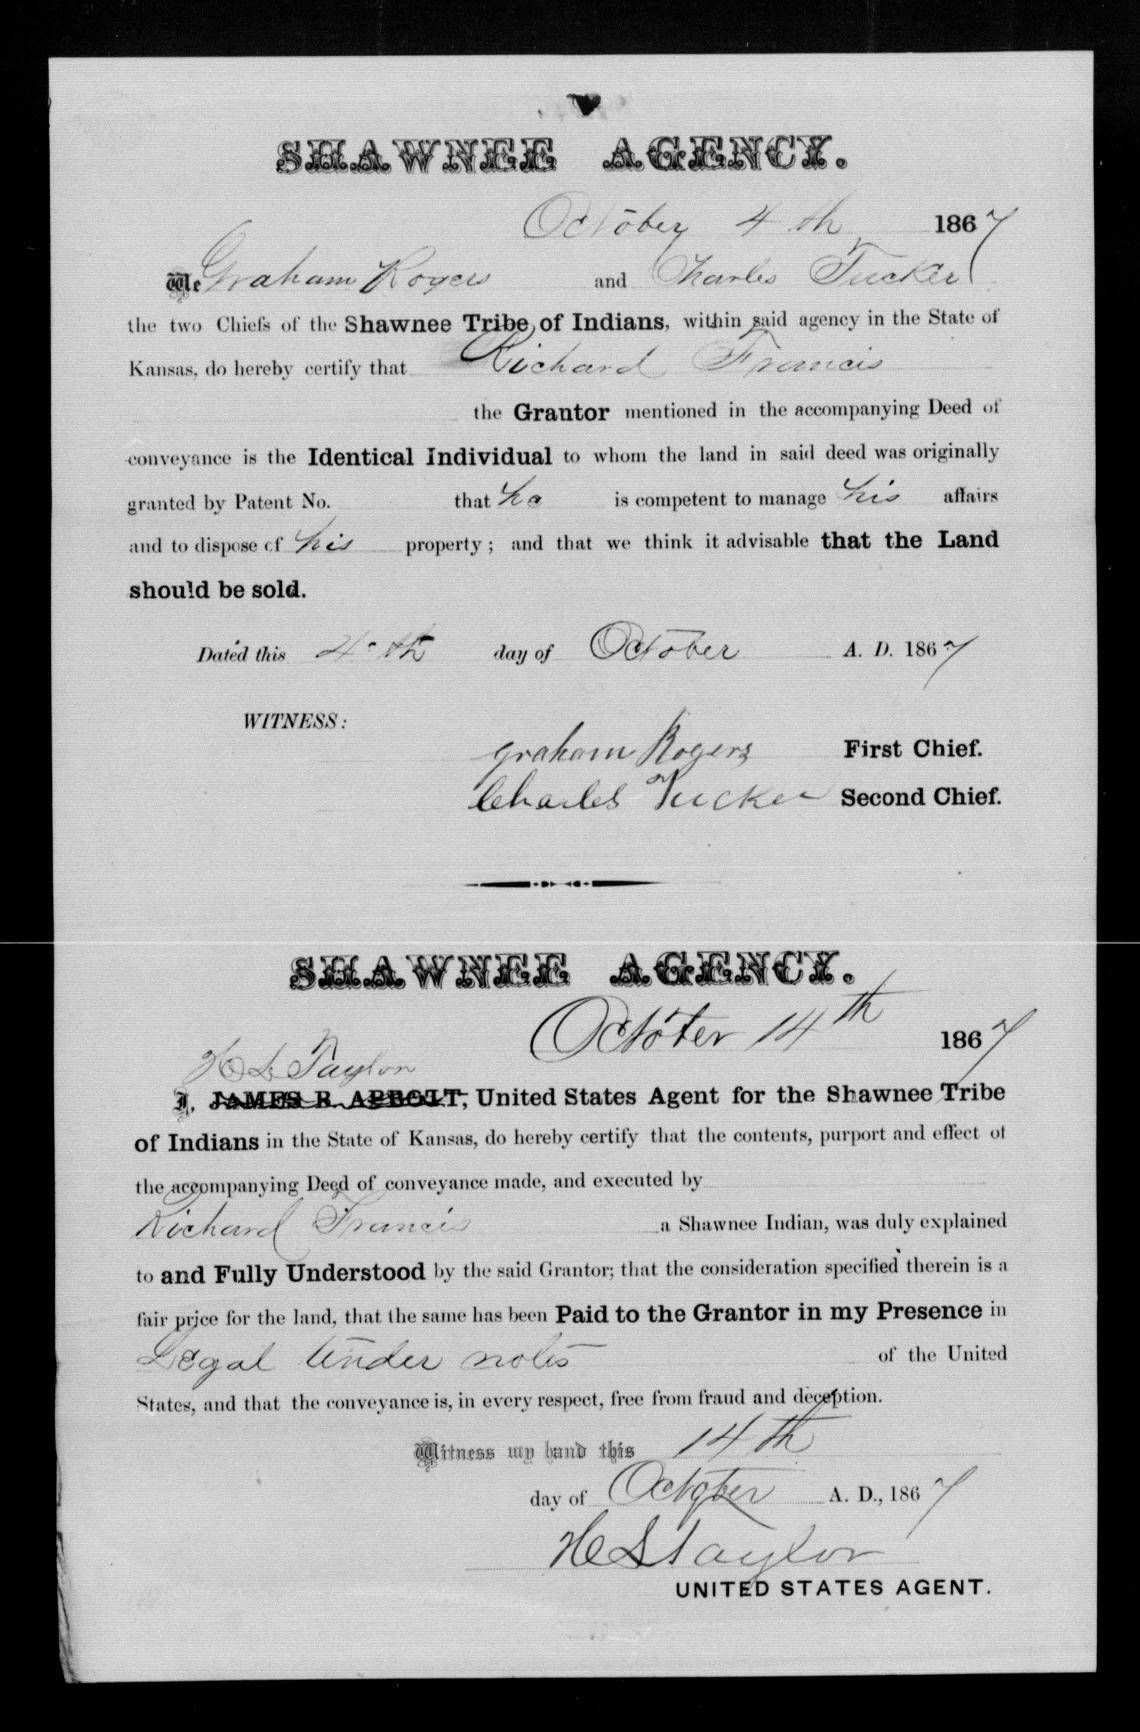 SHAWNEE AGENCY.
October 4th 1867
We Graham Rogers and Charles Tucker
the two Chiefs of the Shawnee Tribe of Indians, within said agency in the State of
Kansas, do hereby certify that Richard Francis
the Grantor mentioned in the accompanying Deed of
conveyance is the Identical Individual to whom the land in said deed was originally
granted by Patent No. that he is competent to manage his affairs
and to dispose of his property; and that we think it advisable that the Land
should be sold.
Dated this 4th day of October A. D. 1867
WITNESS:
Graham Rogers First Chief.
Charles Tucker Second Chief.
SHAWNEE AGENCY.
October 14th 1867
H L Taylor
I, JAMES B. ABBOTT, United States Agent for the Shawnee Tribe
of Indians in the State of Kansas, do hereby certify that the contents, purport and effect of
the accompanying Deed of conveyance made, and executed by
Richard Francis a Shawnee Indian, was duly explained
to and Fully Understood by the said Grantor; that the consideration specified therein is a
fair price for the land, that the same has been Paid to the Grantor in my Presence in
Legal tender notes of the United
States, and that the conveyance is, in every respect, free from fraud and deception.
Witness my hand this 14th
day of October A. D., 1867
H L Taylor
UNITED STATES AGENT.